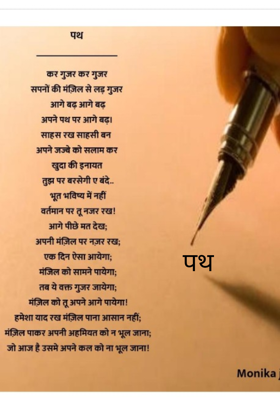 पथ
कर गुज़र कर गुजर
सपनों की मंज़िल से लड़ गुजर
आगे बढ़ आगे बढ़
अपने पथ पर आगे बढ़।
साहस रख साहसी बन
अपने जज्बे को सलाम कर
खुदा की इनायत
तुझ पर बरसेगी ए बंदे..
भूत भविष्य में नहीं
वर्तमान पर तू नजर रख!
आगे पीछे मत देख;
अपनी मंज़िल पर नज़र रख;
एक दिन ऐसा आयेगा;
मंजिल को सामने पायेगा;
तब ये वक्त गुजर जायेगा;
मंज़िल को तू अपने आगे पायेगा!
हमेशा याद रख मंज़िल पाना आसान नहीं;
मंज़िल पाकर अपनी अहमियत को न भूल जाना;
जो आज है उसमे अपने कल को ना भूल जाना!
पथ
Monika